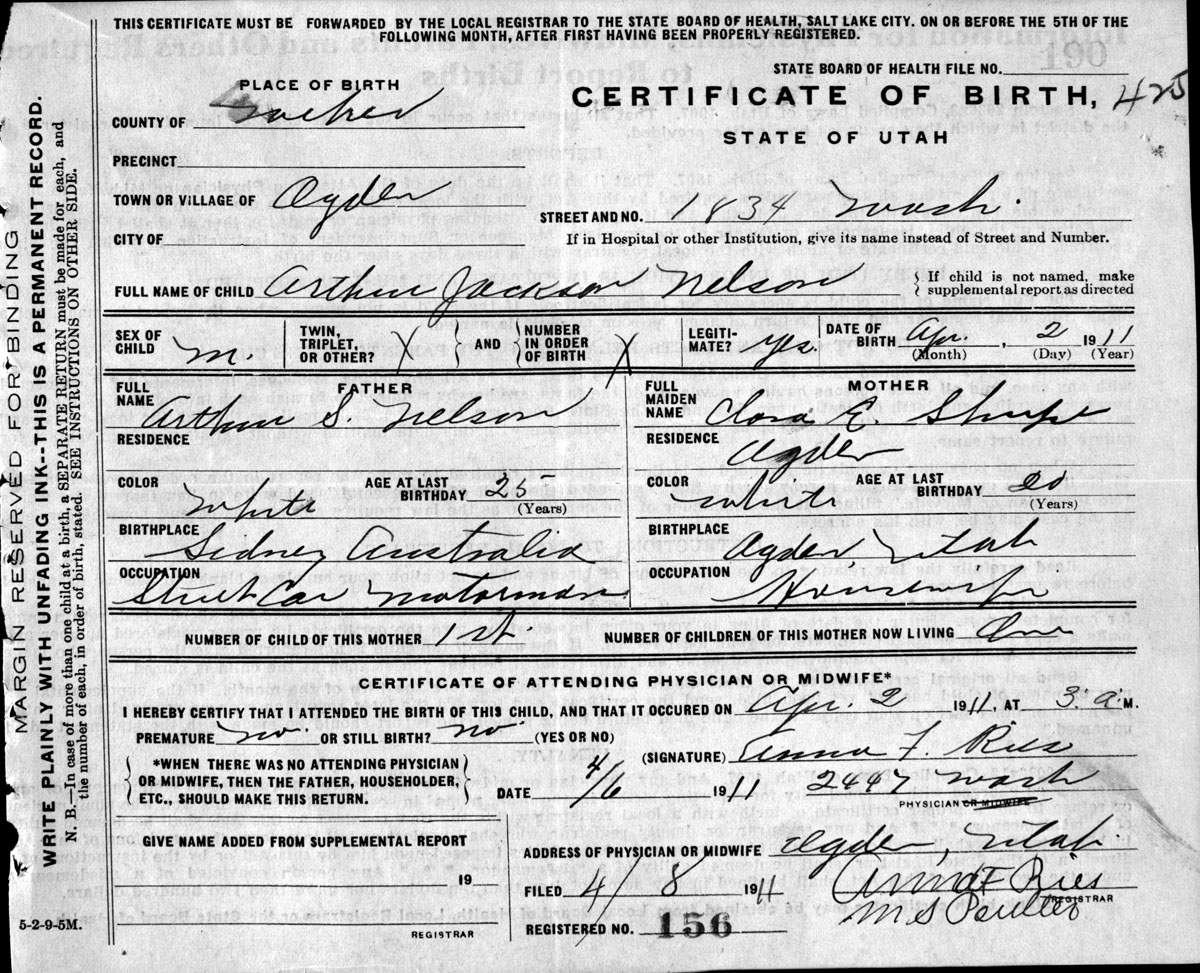 THIS CERTIFICATE MUST BE FORWARDED BY THE LOCAL REGISTRAR TO THE STATE BOARD OF HEALTH, SALT LAKE CITY. ON OR BEFORE THE 5TH OF THE
FOLLOWING MONTH, AFTER FIRST HAVING BEEN PROPERLY REGISTERED.
STATE BOARD OF HEALTH FILE NO.
PLACE OF BIRTH
CERTIFICATE OF BIRTH, 425
STATE OF UTAH
COUNTY OF
PRECINCT
TOWN OR VILLAGE OF Ogden
STREET AND NO. 1834 Wash.
CITY OF
If in Hospital or other Institution, give its name instead of Street and Number.
FULL NAME OF CHILD Arthur Jackson Nelson
{ If child is not named, make
supplemental report as directed
SEX OF CHILD M.
TWIN, TRIPLET, OR OTHER?
{ AND } NUMBER IN ORDER OF BIRTH
LEGITI-MATE? yes.
DATE OF BIRTH Apr. , 2 1911
(Month) (Day) (Year)
FULL NAME FATHER
Arthur S. Nelson
FULL MAIDEN NAME MOTHER
Clora E. Shupe
RESIDENCE
RESIDENCE Ogden
COLOR White AGE AT LAST BIRTHDAY 25 (Years)
COLOR White AGE AT LAST BIRTHDAY 20 (Years)
BIRTHPLACE
Sidney Australia
BIRTHPLACE
Ogden Utah
OCCUPATION
Street Car Motorman
OCCUPATION
Housewife
NUMBER OF CHILD OF THIS MOTHER 1st. NUMBER OF CHILDREN OF THIS MOTHER NOW LIVING One
CERTIFICATE OF ATTENDING PHYSICIAN OR MIDWIFE*
I HEREBY CERTIFY THAT I ATTENDED THE BIRTH OF THIS CHILD, AND THAT IT OCCURED ON Apr. 2 1911, AT 3 a. M.
PREMATURE no. OR STILL BIRTH? no. (YES OR NO)
(SIGNATURE) Anna F. Ries
{ *WHEN THERE WAS NO ATTENDING PHYSICIAN
OR MIDWIFE, THEN THE FATHER, HOUSEHOLDER,
ETC., SHOULD MAKE THIS RETURN. }
DATE 4/6 1911 2447 Wash
PHYSICIAN OR MIDWIFE
GIVE NAME ADDED FROM SUPPLEMENTAL REPORT
19
REGISTRAR
ADDRESS OF PHYSICIAN OR MIDWIFE Ogden, Utah.
FILED 4/8 1911 Anna F Ries
REGISTRAR
M S
REGISTERED NO. 156
5-2-9-5M.
MARGIN RESERVED FOR BINDING
WRITE PLAINLY WITH UNFADING INK--THIS IS A PERMANENT RECORD.
N. B.—In case of more than one child at a birth, a SEPARATE RETURN must be made for each, and
the number of each, in order of birth, stated. SEE INSTRUCTIONS ON OTHER SIDE.